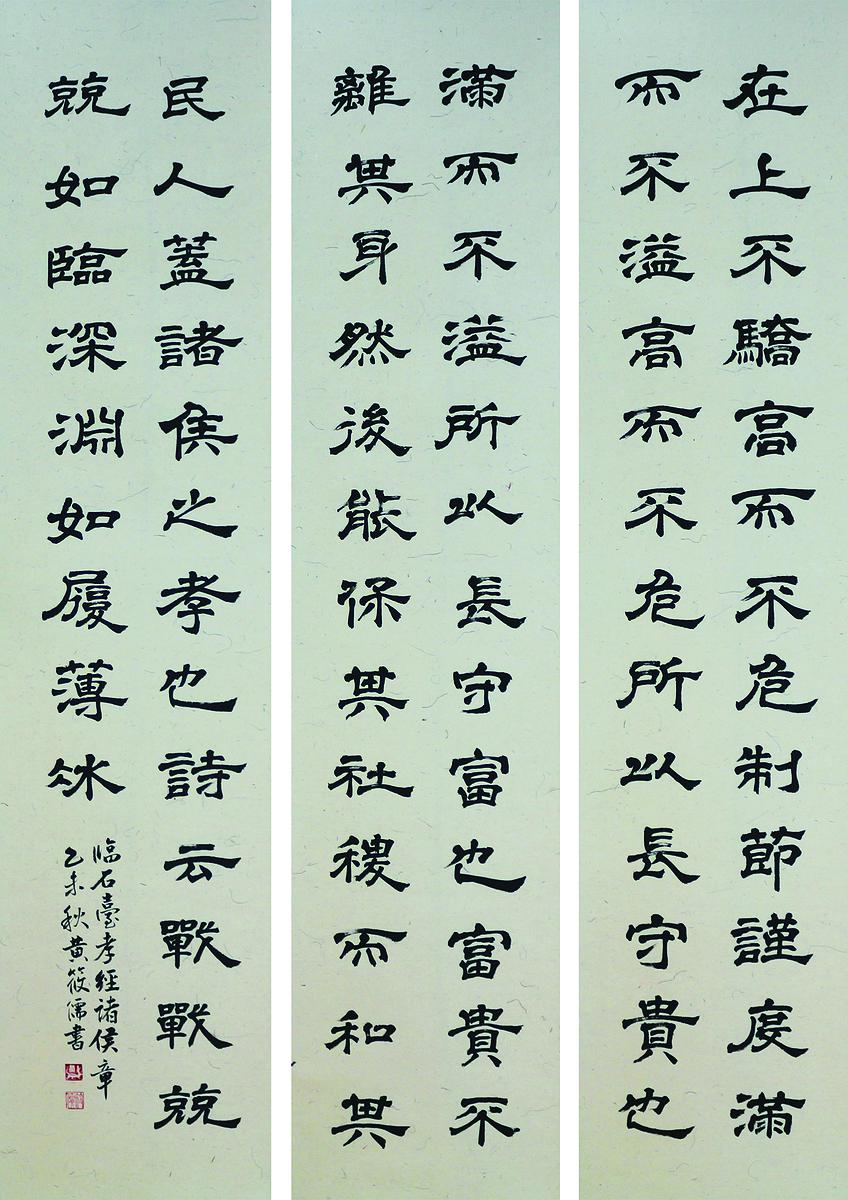 在上不驕高而不危制節謹度滿
而不溢高而不危所以長守貴也
滿而不溢所以長守富也富貴不
離其身然後能保其社稷而和其
民人蓋諸侯之孝也詩云戰戰兢
兢如臨深淵如履薄冰
临石臺孝經诸侯章
乙未秋黄筱儒書